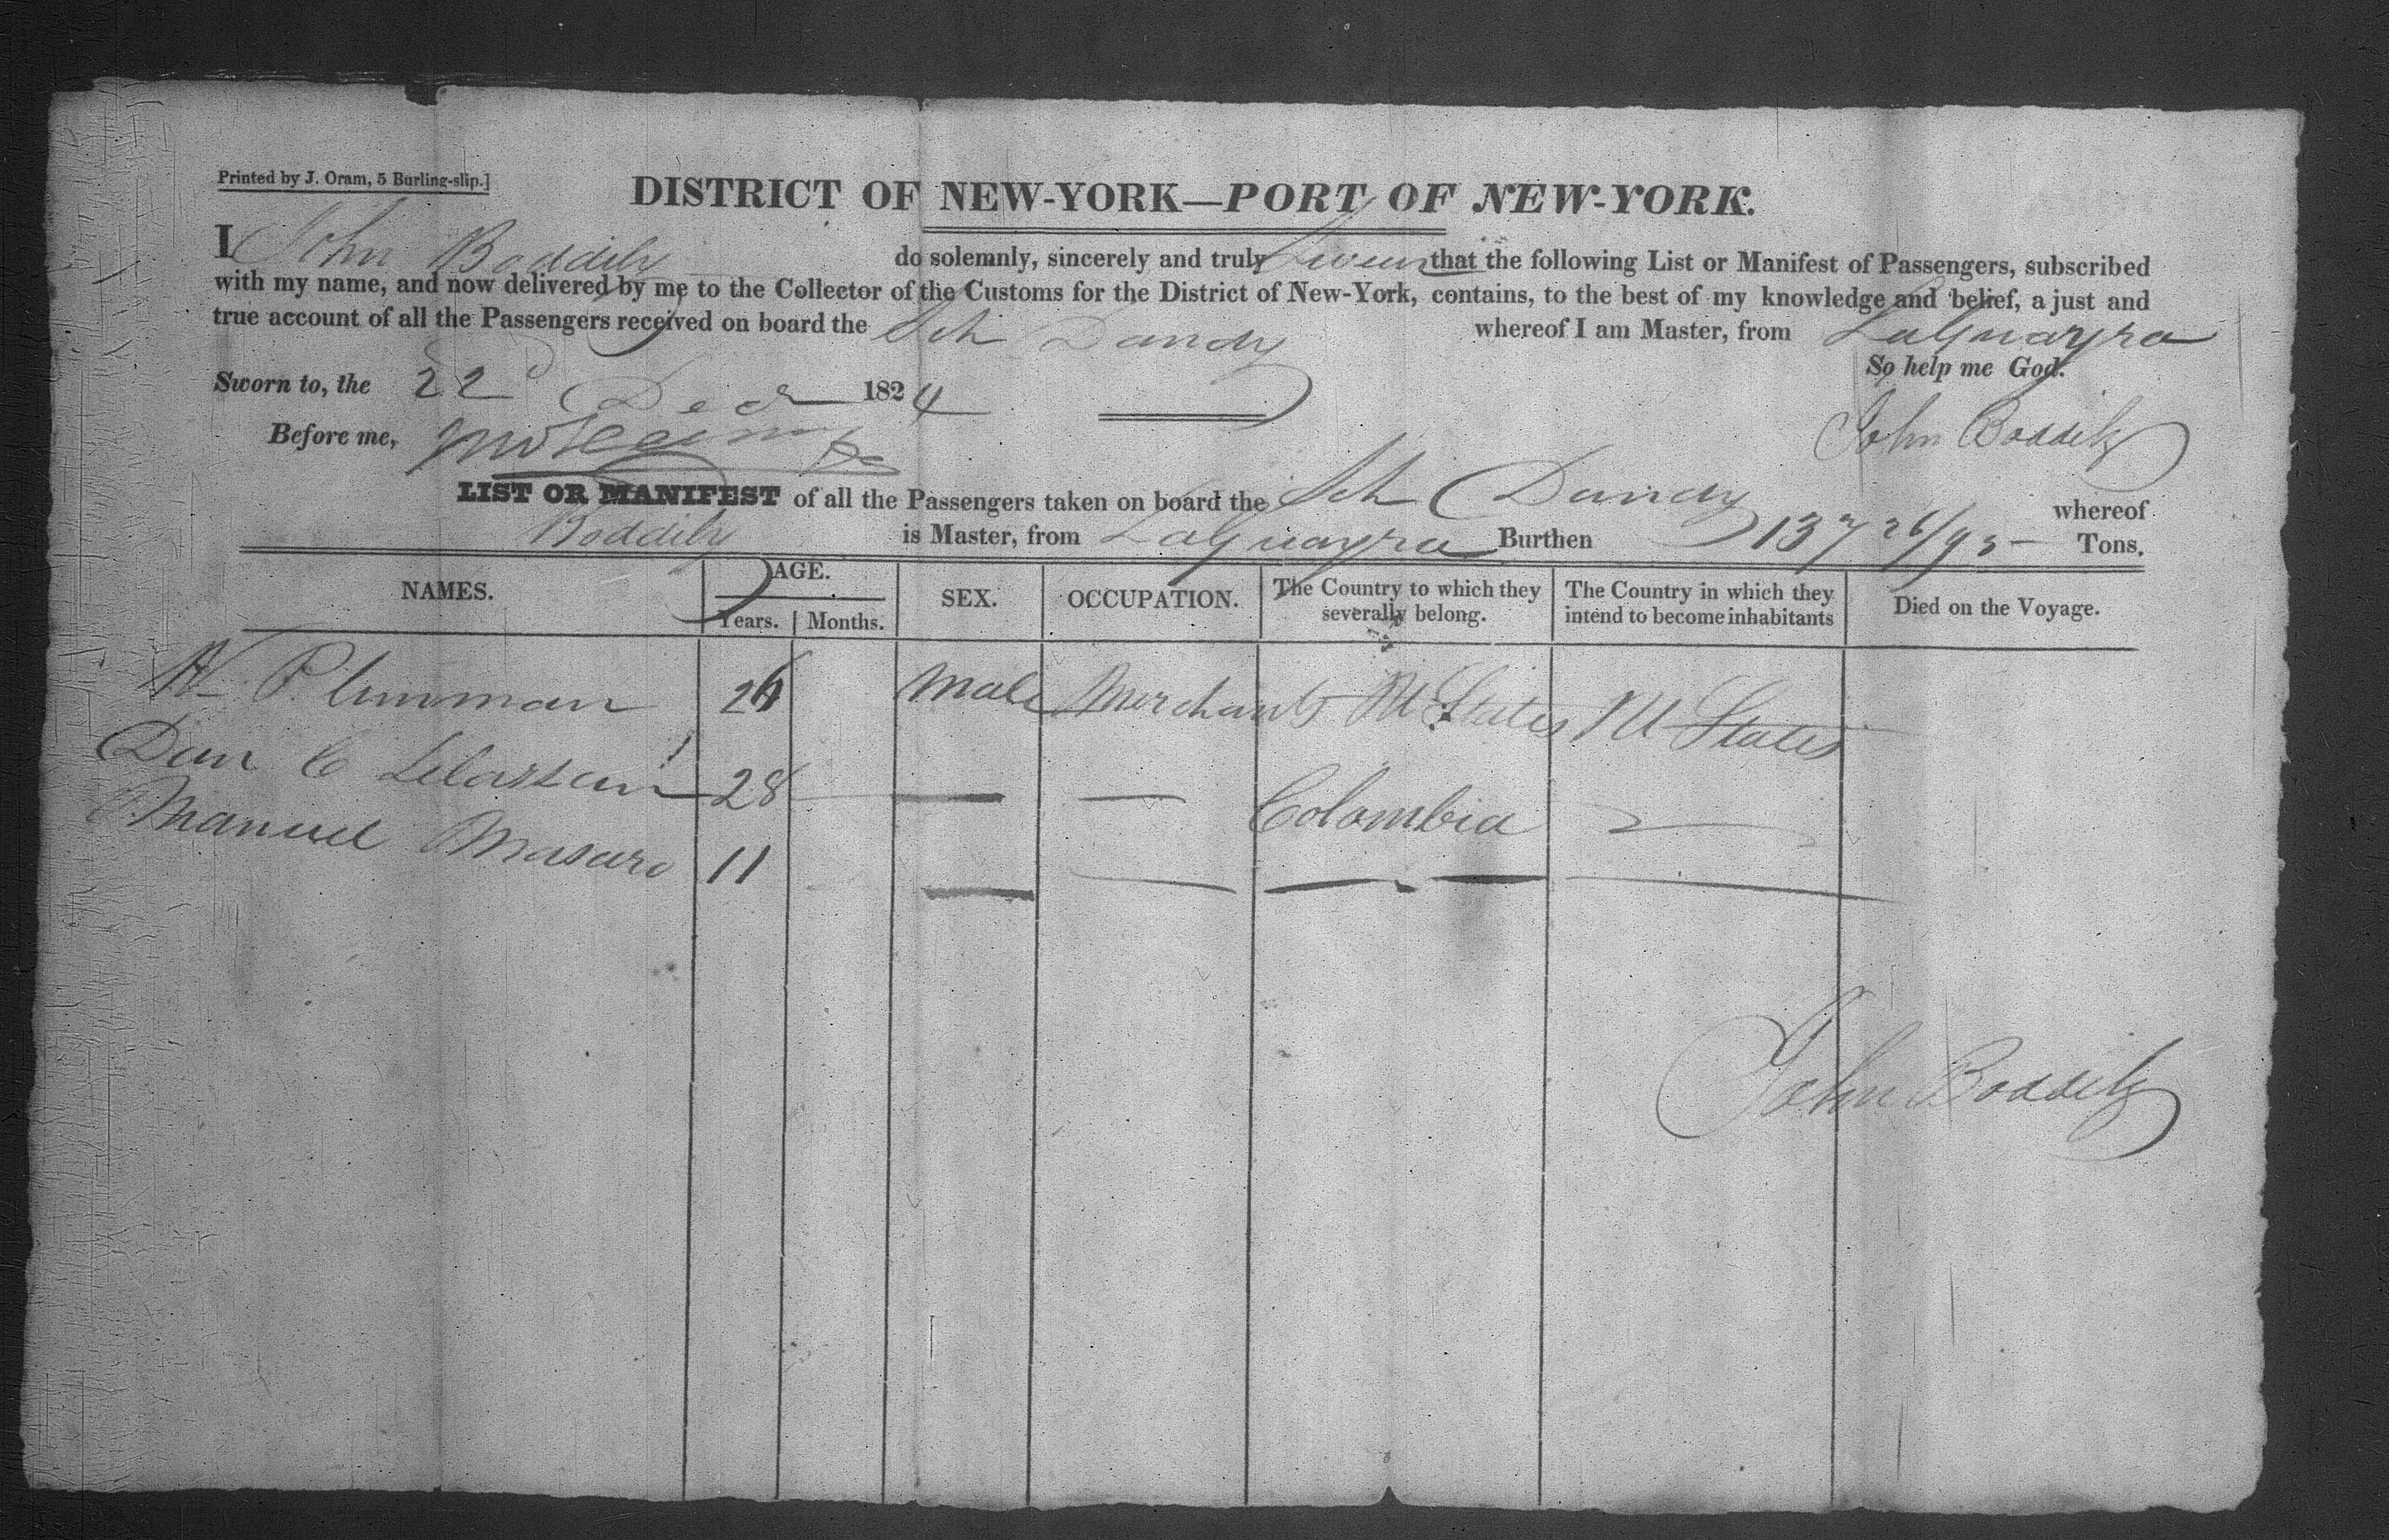 Printed by J. Oram, 5 Burling-slip.]
DISTRICT OF NEW-YORK—PORT OF NEW-YORK.
I John Boddily do solemnly, sincerely and truly Swear that the following List or Manifest of Passengers, subscribed
with my name, and now delivered by me to the Collector of the Customs for the District of New-York, contains, to the best of my knowledge and belief, a just and
true account of all the Passengers received on board the Sch Dandy whereof I am Master, from LaGuayra
So help me God.
Sworn to, the 22 Decr 1824
John Boddily
Before me,
LIST OR MANIFEST of all the Passengers taken on board the Sch Dandy whereof
Boddily is Master, from LaGuayra Burthen 137 26/95 Tons.
NAMES. AGE. Years. Months. SEX. OCCUPATION. The Country to which they severally belong. The Country in which they intend to become inhabitants Died on the Voyage.
26 Male Merchants U States U States
28 — — Colombia —
Manuel Masaro 11 — — — —
John Boddily